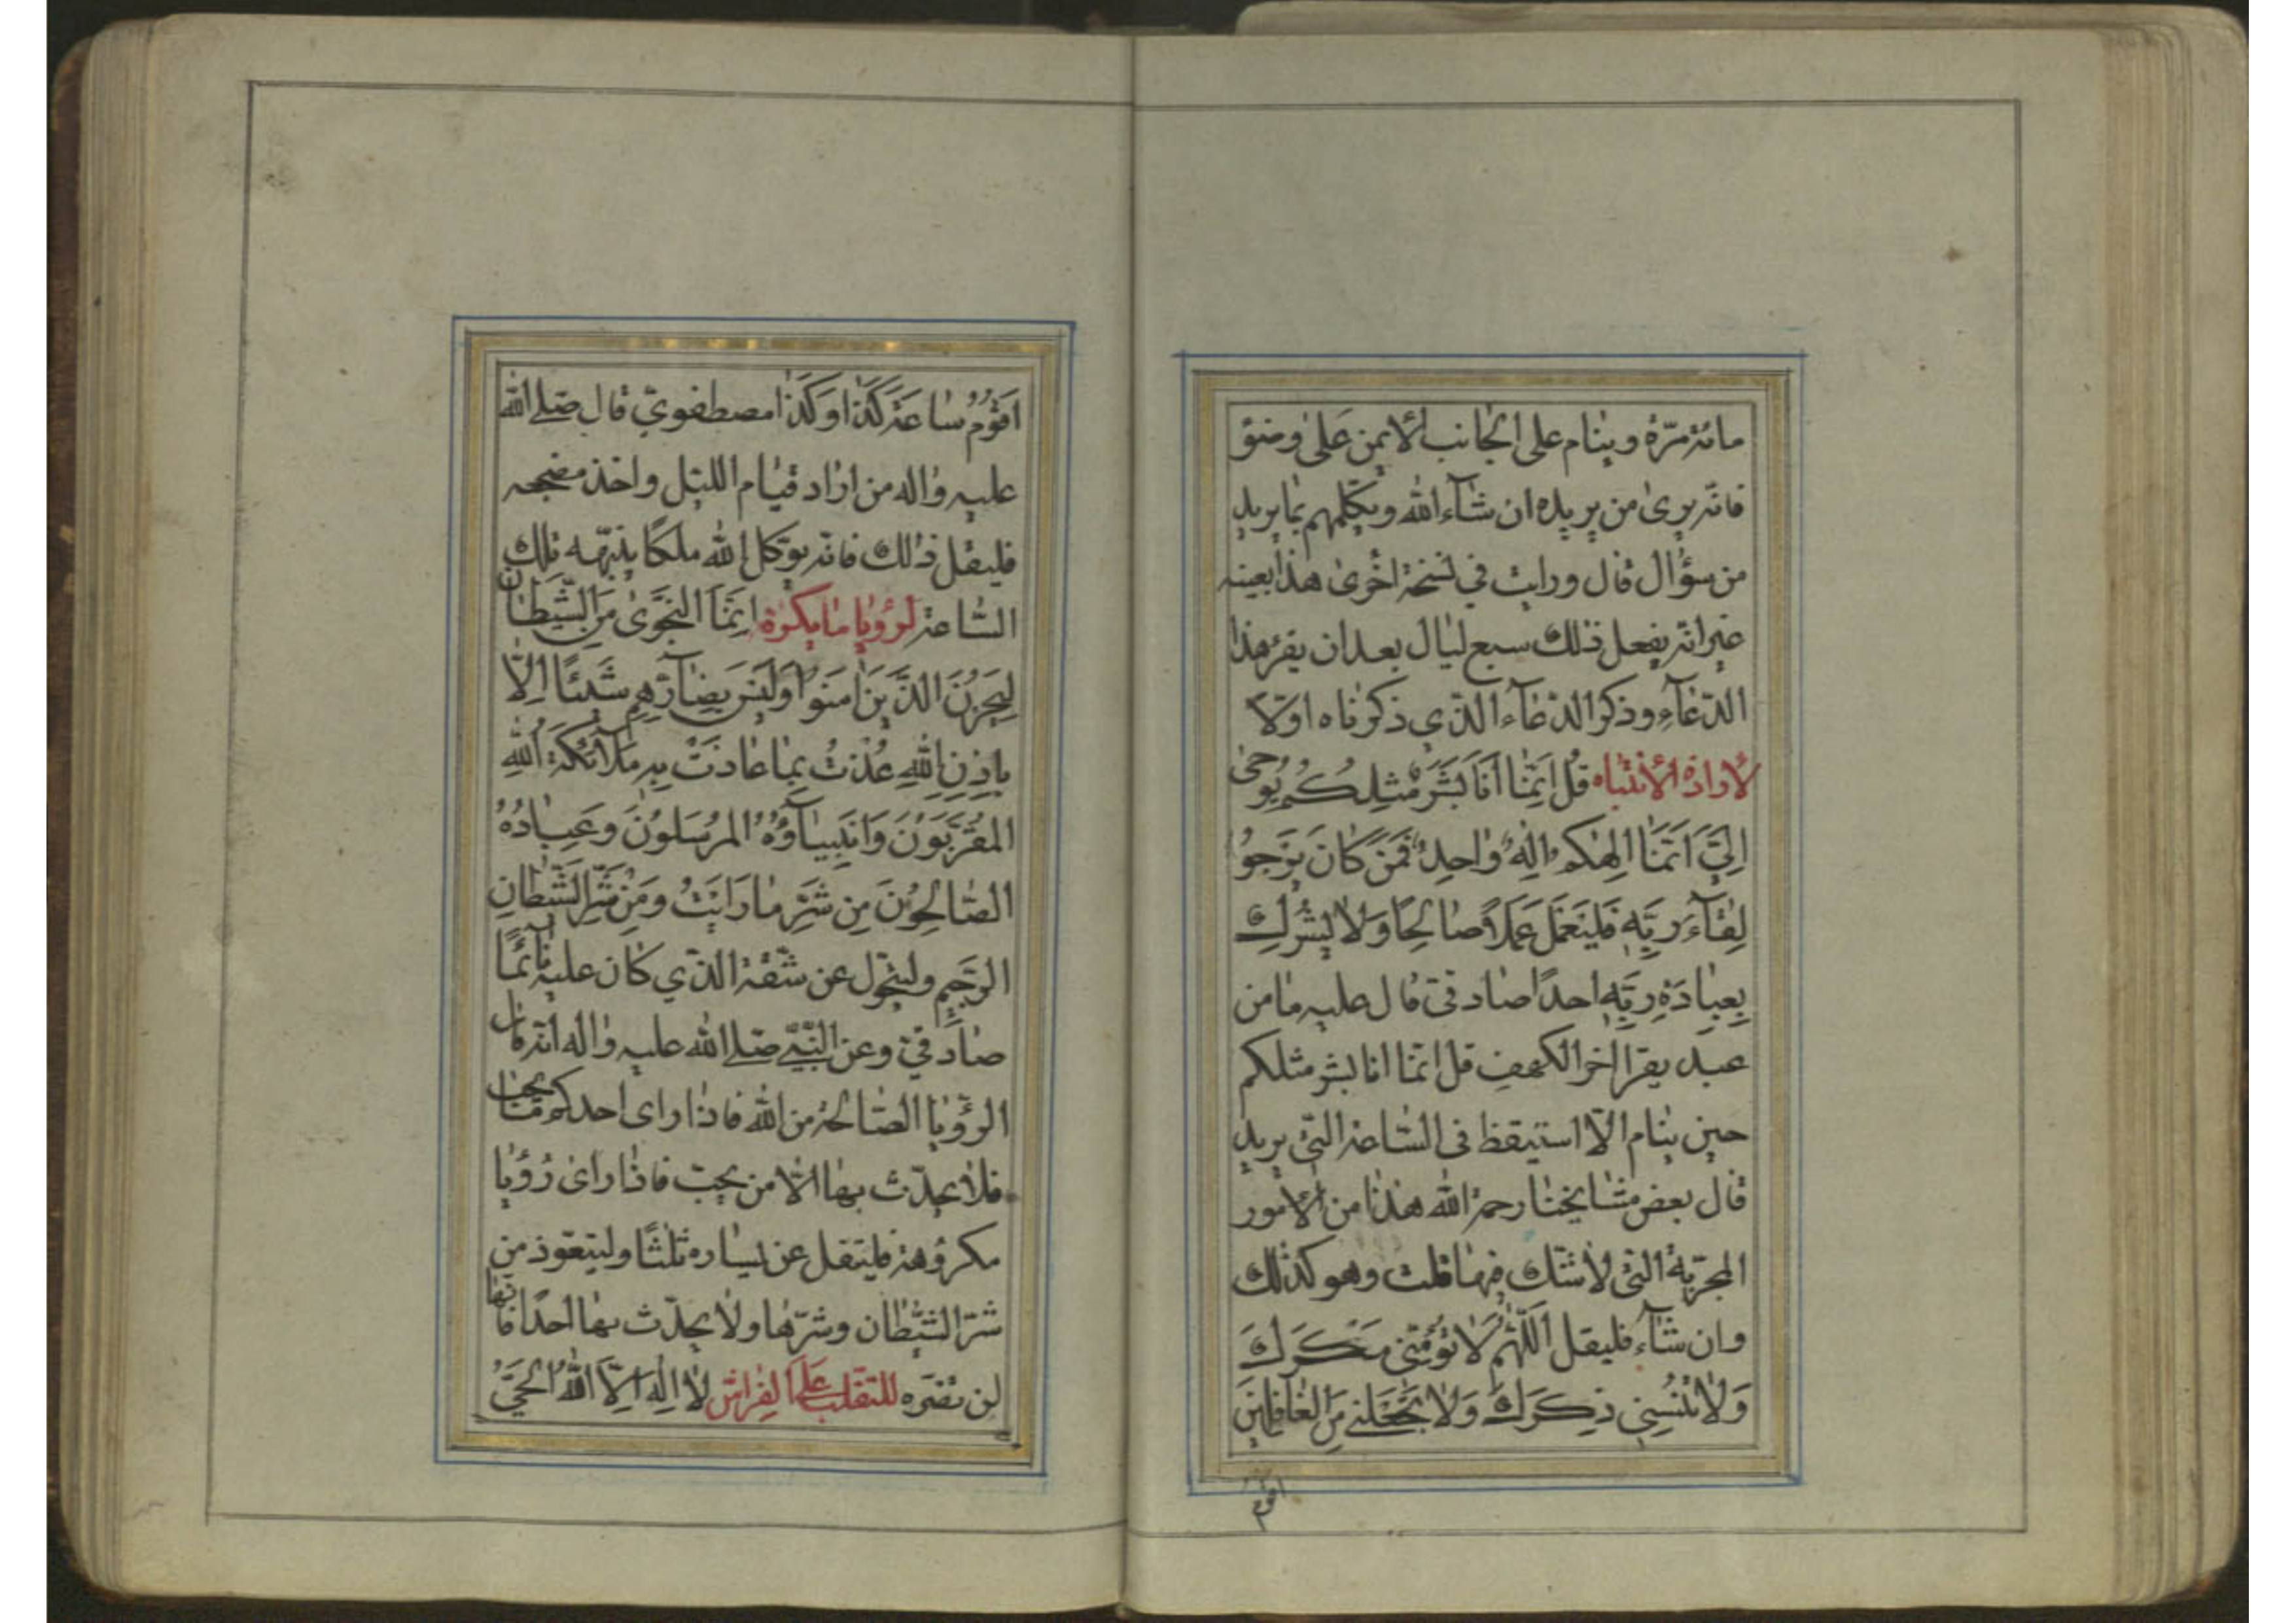 مائة مرّة وينام على الجانب الأيمن على وضوء
فانّه يرى من يريده ان شآء الله ويكلّمهم بما يريد
من سؤال قال ورايت في نسخة اخرى هذا بعينه
غير انّه يفعل ذلك سبع ليال بعد ان يقرء هذا
الدّعآء وذكر الدّعآء الذّي ذكرناه اوّلا
لأرادة الأنتباه قُل اِنَّمٰا اَنَا بَشَرٌ مِثلُكُم يُوحىٰ
اِلَيَّ اَنَّمَا اِلٰهُكُم اِلٰهٌ وٰاحِدٌ فَمَن كٰانَ يَرجُوا
لِقٰآءَ رَبِّهِ فَليَعمَل عَمَلاً صٰالِحًا وَلاٰ يُشرِك
بِعِبٰادَةِ رَبِّهِ احدًا صٰادقيّ قال عليه مٰا من
عبد يقرا اخر الكهف قل انّما انا بشر مثلكم
حين ينام الّا استيقظ فى السّاعة التّى يريد
قال بعض مشايخنا رحمة الله هذا من الأمور
المجرّبة التّى لا شكّ فيها قلت وهو كذلك
وان شآء فليقل اَللّٰهُمَّ لاٰ تُؤمِنّي مَكرَكَ
وَلاٰ تُنسِنِي ذِكرَكَ وَلاٰ تَجعَلني مِنَ الغٰافِلِينَ
اقوم
اَقُومُ سٰاعَةَ كَذٰا وَكَذٰا مصطفويّ قال صلى الله
عليه وٰاله من ارٰاد قيٰام الليل واخذ مضجعه
فليقل ذٰلك فانّه يوّكل الله ملكًا ينبّهه تلك
السّاعة لرؤيٰا مٰا يكره اِنَّمَا النَّجوىٰ مِنَ الشَّيطٰانِ
لِيَحزُنَ الَّذِينَ اٰمَنوُا وَلَيسَ بِضٰآرِّهِم شَيئًا اِلاّٰ
بِاِذنِ اللهِ عُذتُ بِمٰا عٰاذَت بِهِ مَلآئِكَةُ اللهِ
المُقَرَّبُونَ وَاَنبِيٰآؤُهُ المُرسَلُونَ وَعِبٰادُهُ
الصّٰالِحُونَ مِن شَرِّ مٰا رَاَيتُ وَمِن شَرِّ الشَّيطٰانِ
الرَّجِيمِ وليتحوّل عن شقّه الذّي كان عليه نآئمًا
صٰادقيّ وعن النّبيّ صلى الله عليه وٰاله انّه قال
الرّؤيٰا الصّٰالحة من الله فاذٰا راى احدكم مٰا يحبّ
فلاٰ يحدّث بهٰا الاّٰ من يحبّ فاذٰا راىٰ رُؤيٰا
مكروُهة فليتفل عن يسٰاره ثلثًا وليتعوّذ من
شرّ الشّيطٰان وشرّهٰا ولاٰ يحدّث بهٰا احدًا فانّهٰا
لن تضرّه للتقلّب على الفِرٰاش لاٰ اِلٰهَ اِلاَّ اللهُ الحَيُّ